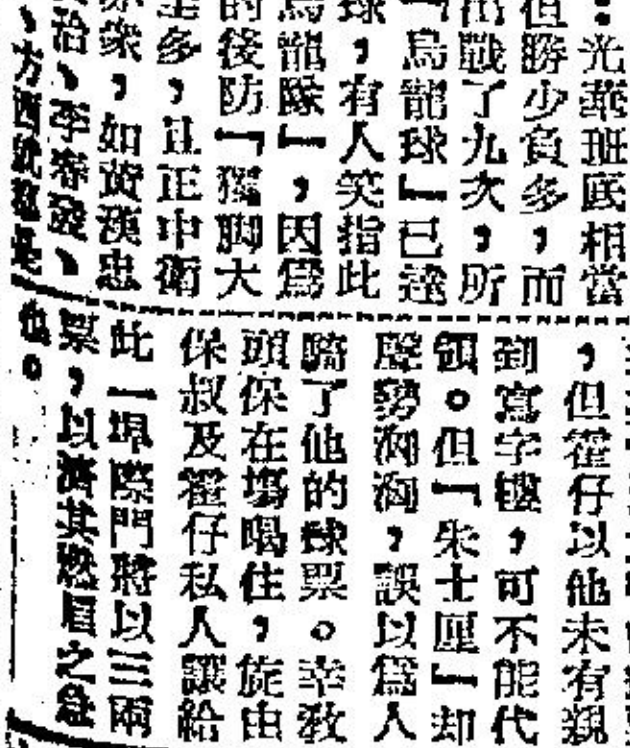 ：光華班底相當
但勝少負多，而
出戰了九次，所
「烏龍球」已達
球，有人笑指此
烏龍隊」，因爲
的後防「獨脚大
至多，且正中衛
衆，如黃漢忠
治、李春發、
、方西就穩是
，但霍仔以他未有親
到寫字樓，可不能代
領。但「朱士厘」却
聲勢洶洶，誤以爲人
騎了他的球票。幸敎
頭保在塲喝住，旋由
保叔及霍仔私人讓給
此一埠際門將以三兩
票，以濟其燃眉之急
也。